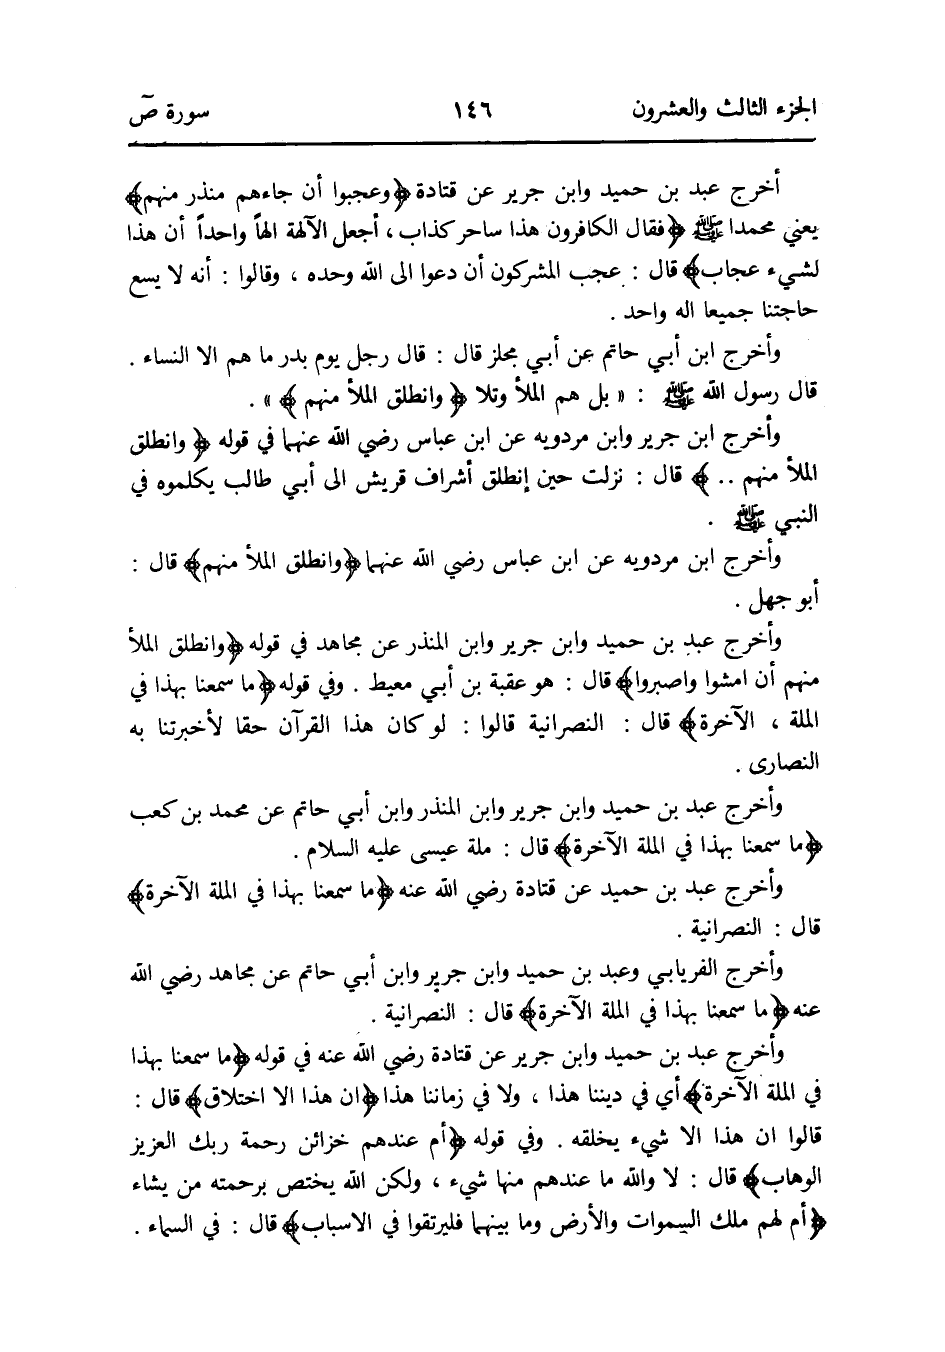 الجزء الثالث والعشرون ١٤٦ سورة صٓ
أخرج عبد بن حميد وابن جرير عن قتادة ﴿وعجبوا أن جاءهم منذر منهم﴾
يعني محمدا ﷺ ﴿فقال الكافرون هذا ساحر كذاب ، أجعل الآلهة الهاً واحداً أن هذا
لشيء عجاب﴾ قال : عجب المشركون أن دعوا الى الله وحده ، وقالوا : أنه لا يسع
حاجتنا جميعا اله واحد .
وأخرج ابن أبي حاتم عن أبي مجلز قال : قال رجل يوم بدر ما هم الا النساء .
قال رسول الله ﷺ : « بل هم الملأ وتلا ﴿ وانطلق الملأ منهم ﴾ » .
وأخرج ابن جرير وابن مردويه عن ابن عباس رضي الله عنهما في قوله ﴿ وانطلق
الملأ منهم .. ﴾ قال : نزلت حين إنطلق أشراف قريش الى أبي طالب يكلموه في
النبي ﷺ .
وأخرج ابن مردويه عن ابن عباس رضي الله عنهما ﴿وانطلق الملأ منهم﴾ قال :
أبو جهل .
وأخرج عبد بن حميد وابن جرير وابن المنذر عن مجاهد في قوله ﴿وانطلق الملأ
منهم أن امشوا واصبروا﴾ قال : هو عقبة بن أبي معيط . وفي قوله ﴿ما سمعنا بهذا في
الملة ، الآخرة﴾ قال : النصرانية قالوا : لو كان هذا القرآن حقا لأخبرتنا به
النصارى .
وأخرج عبد بن حميد وابن جرير وابن المنذر وابن أبي حاتم عن محمد بن كعب
﴿ما سمعنا بهذا في الملة الآخرة﴾ قال : ملة عيسى عليه السلام .
وأخرج عبد بن حميد عن قتادة رضي الله عنه ﴿ما سمعنا بهذا في الملة الآخرة﴾
قال : النصرانية .
وأخرج الفريابي وعبد بن حميد وابن جرير وابن أبي حاتم عن مجاهد رضي الله
عنه ﴿ما سمعنا بهذا في الملة الآخرة﴾ قال : النصرانية .
وأخرج عبد بن حميد وابن جرير عن قتادة رضي الله عنه في قوله ﴿ما سمعنا بهذا
في الملة الآخرة﴾ أي في ديننا هذا ، ولا في زماننا هذا ﴿ان هذا الا اختلاق﴾ قال :
قالوا ان هذا الا شيء يخلقه . وفي قوله ﴿أم عندهم خزائن رحمة ربك العزيز
الوهاب﴾ قال : لا والله ما عندهم منها شيء ، ولكن الله يختص برحمته من يشاء
﴿أم لهم ملك السموات والأرض وما بينهما فليرتقوا في الاسباب﴾ قال : في السماء .